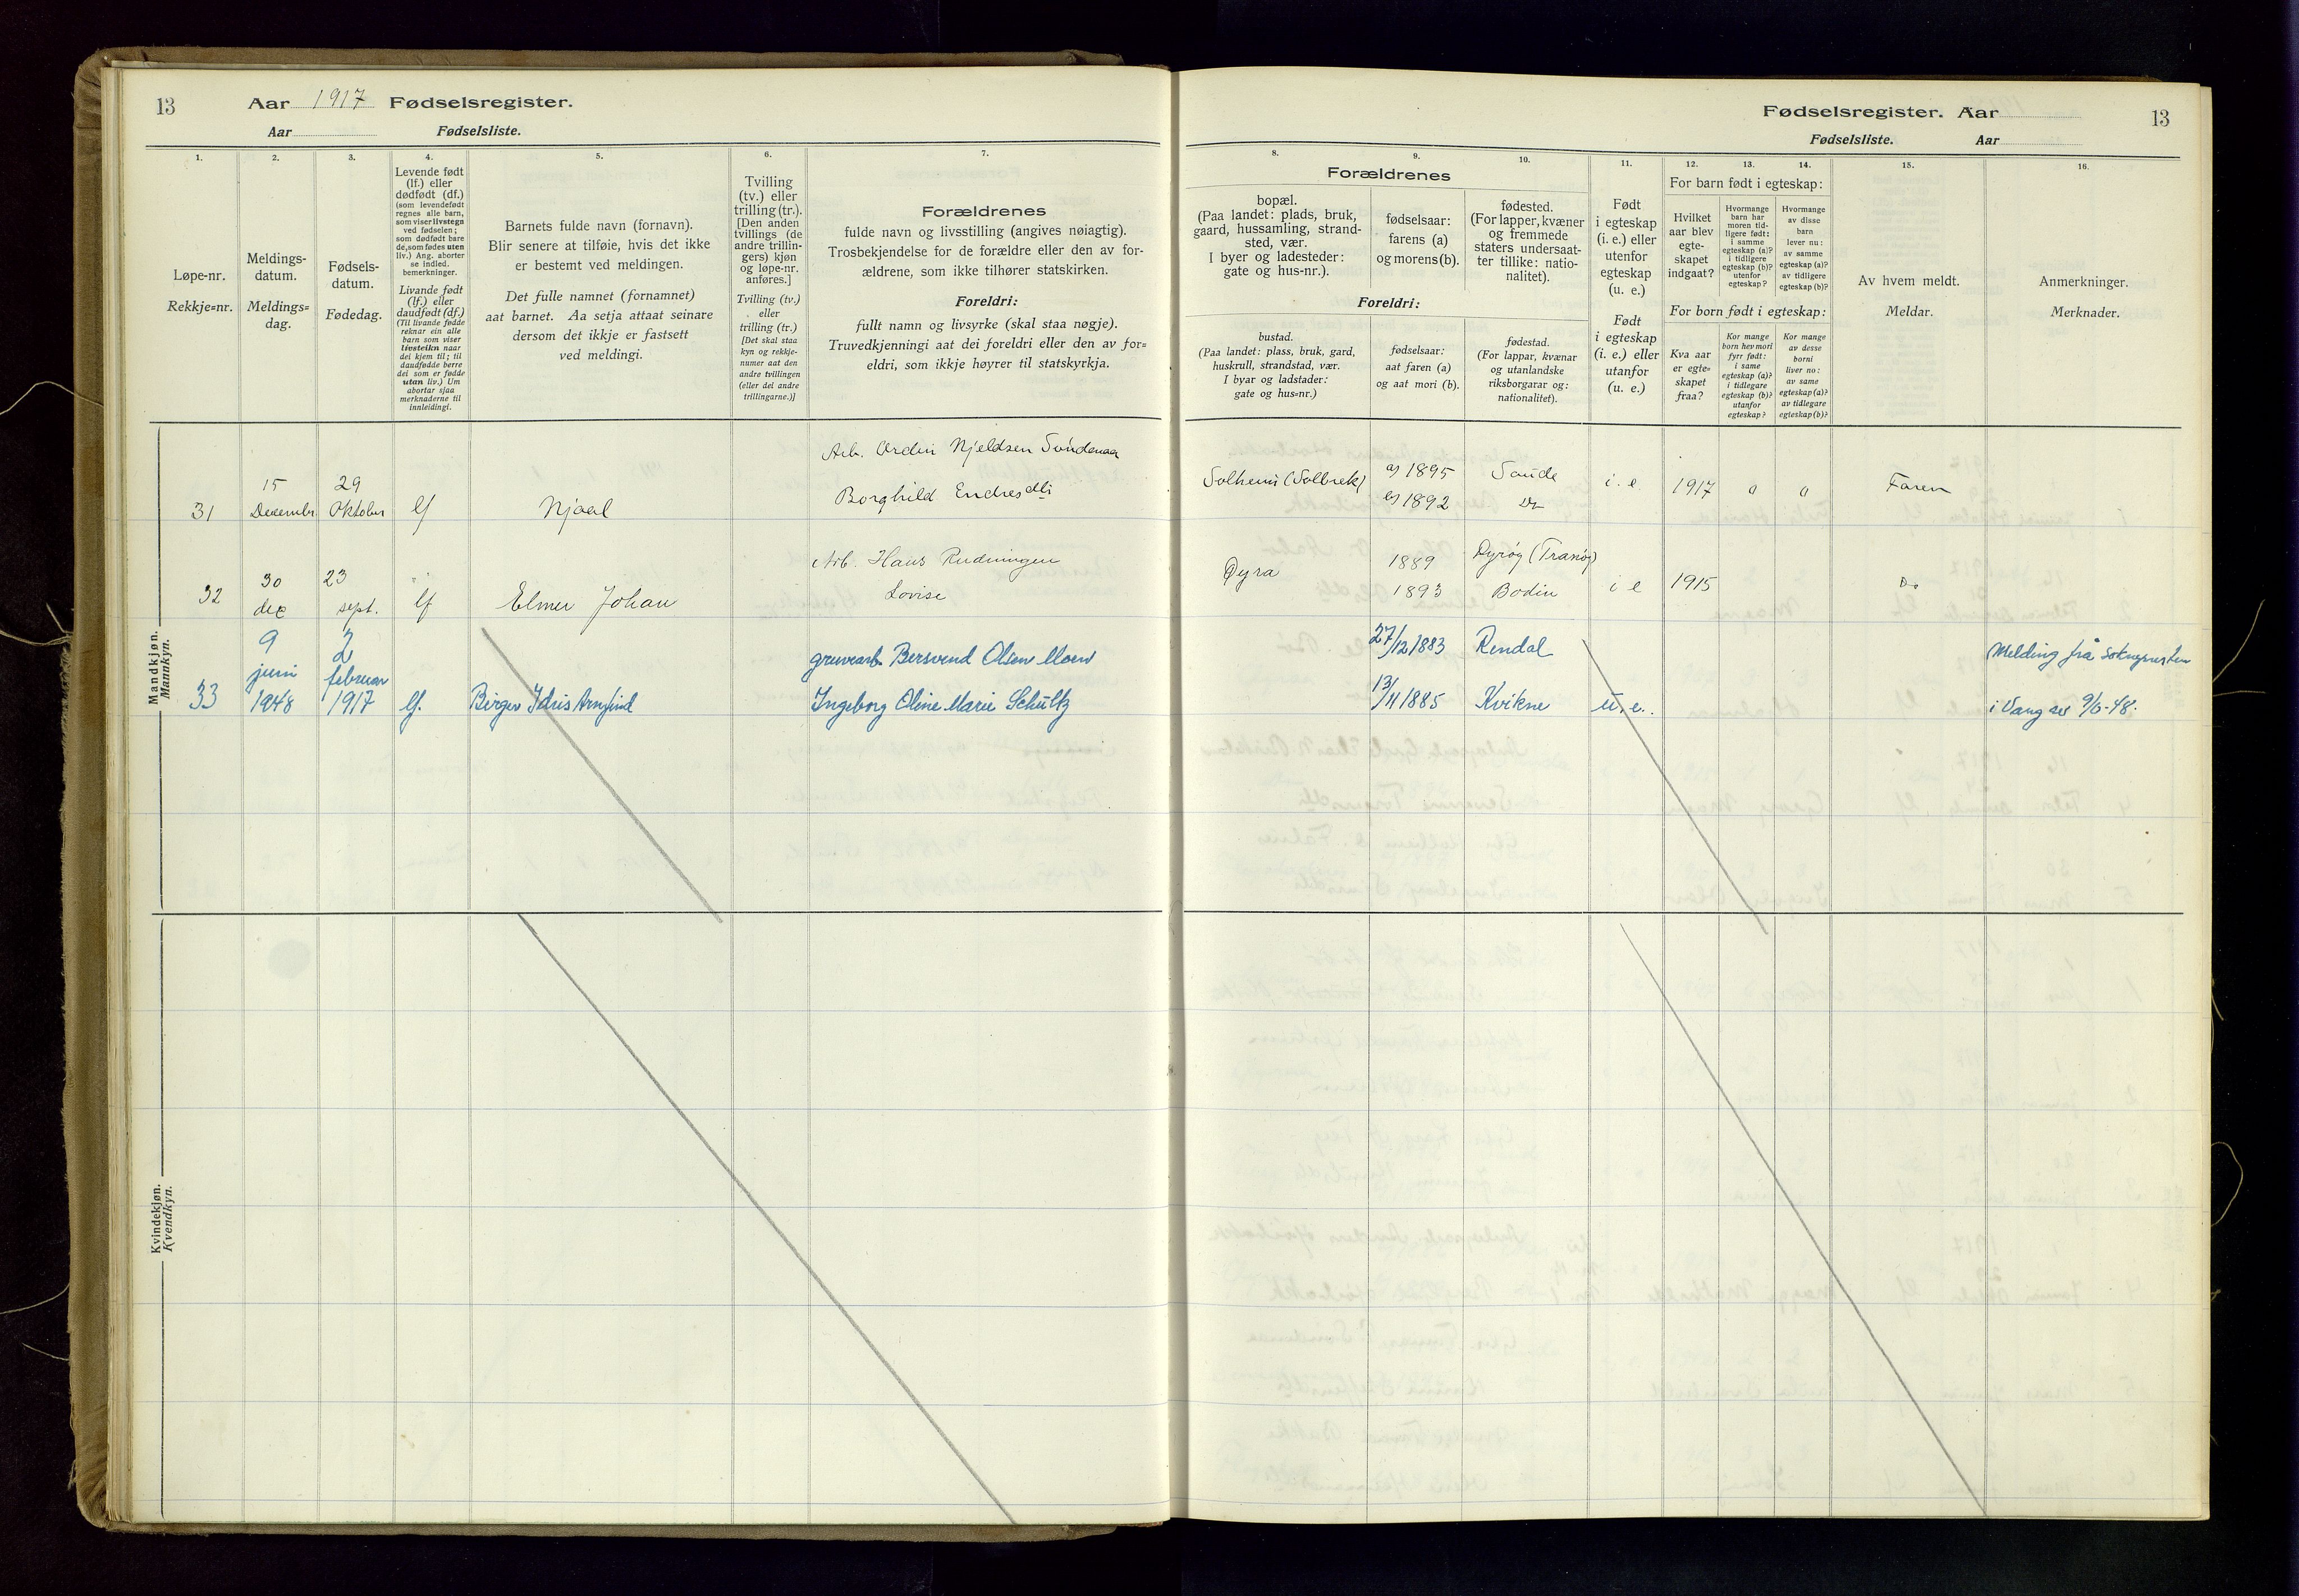 13
Aar 1917 Fødselsregister.
Aar Fødselsliste.
1.
2.
3.
4.
5.
6.
7.
Løpe-nr.
Rekkje=nr.
Meldings-
datum.
Meldings=
dag.
Fødsels-
datum.
Fødedag.
Levende født
(lf.) eller
dødfødt (df.)
(som levendefødt
regnes alle barn,
som viser livstegn
ved fødselen;
som dødfødt bare
de, som fødes uten
liv.) Ang. aborter
se indled.
bemerkninger.
Livande født
(lf.) eller
daudfødt (df.)
(Til livande fødde
reknar ein alle
barn som viser
livsteikn naar
dei kjem til; til
daudfødde berre
dei som er fødde
utan liv.) Um
abortar sjaa
merknaderne til
innleidingi.
Barnets fulde navn (fornavn).
Blir senere at tilføie, hvis det ikke
er bestemt ved meldingen.
Det fulle namnet (fornamnet)
aat barnet. Aa setja attaat seinare
dersom det ikkje er fastsett
ved meldingi.
Tvilling
(tv.) eller
trilling (tr.).
[Den anden
tvillings (de
andre trillin-
gers) kjøn
og løpe-nr.
anføres.]
Tvilling (tv.)
eller
trilling (tr.)
[Det skal staa
kyn og rekkje-
numer aat den
andre tvillingen
(eller dei andre
trillingarne.)]
Forældrenes
fulde navn og livsstilling (angives nøiagtig).
Trosbekjendelse for de forældre eller den av for-
ældrene, som ikke tilhører statskirken.
Foreldri:
fullt namn og livsyrke (skal staa nøgje).
Truvedkjenningi aat dei foreldri eller den av for=
eldri, som ikkje høyrer til statskyrkja.
Mandkjøn.
Mannkyn.
31
15
Decembr
29
Oktober
lf
Njaal
Arb. Ordin Njeldsen Søndenaa
Borghild Endresdtr
32
30
dec
23
sept.
lf
Elmer Johan
Arb. Hans Rudningen
Lovise
33
9
juni
1948
2
februar
1917
lf.
Birger Idris Arnfind
gruvearb. Bersvend Olsen Moen
Ingeborg Oline Marie Schultz
Kvindekjøn.
Kvendkyn.
Fødselsregister. Aar
13
Fødselsliste. Aar
8.
9.
10.
11.
12.
13.
14.
15.
16.
Forældrenes
bopæl.
(Paa landet: plads, bruk,
gaard, hussamling, strand-
sted, vær.
I byer og ladesteder:
gate og hus-nr.).
fødselsaar:
farens (a)
og morens (b).
fødested.
(For lapper, kvæner
og fremmede
staters undersaat-
ter tillike: natio-
nalitet).
Foreldri:
bustad.
(Paa landet: plass, bruk, gard,
huskrull, strandstad, vær.
I byar og ladstader:
gate og hus=nr.)
fødselsaar:
aat faren (a)
og aat mori (b).
fødestad.
(For lappar, kvænar
og utanlandske
riksborgarar og:
nationalitet).
Født
i egteskap
(i. e.) eller
utenfor
egteskap
(u. e.)
Født
i egteskap
(i. e.) eller
utanfor
(u. e.)
For barn født i egteskap:
Hvilket
aar blev
egte-
skapet
indgaat?
Hvormange
barn har
moren tid-
ligere født:
i samme
egteskap (a)?
i tidligere
egteskap (b)?
utenfor
egteskap?
Hvormange
av disse
barn
lever nu:
av samme
egteskap (a)?
av tidligere
egteskap (b)?
For born født i egteskap:
Kva aar
er egte=
skapet
fraa?
Kor mange
born hev mori
fyrr født:
i same
egteskap (a)?
i tidlegare
egteskap (b)?
utanfor
egteskap?
Kor mange
av desse
borni
liver no:
av same
egteskap (a)?
av tidlegare
egteskap (b)?
Av hvem meldt.
Meldar.
Anmerkninger.
Merknader.
Solheim (Solbrek)
a) 1895
b) 1892
Saude
Do
i. e
1917
0
0
Faren
Øyra
1889
1893
Dyrøy (Tranøy)
Bodin
i e
1915
Do
27/12 1883
13/11 1885
Rendal
Kvikne
u. e..
Melding frå soknepresten
i Vang av 9/6-48.